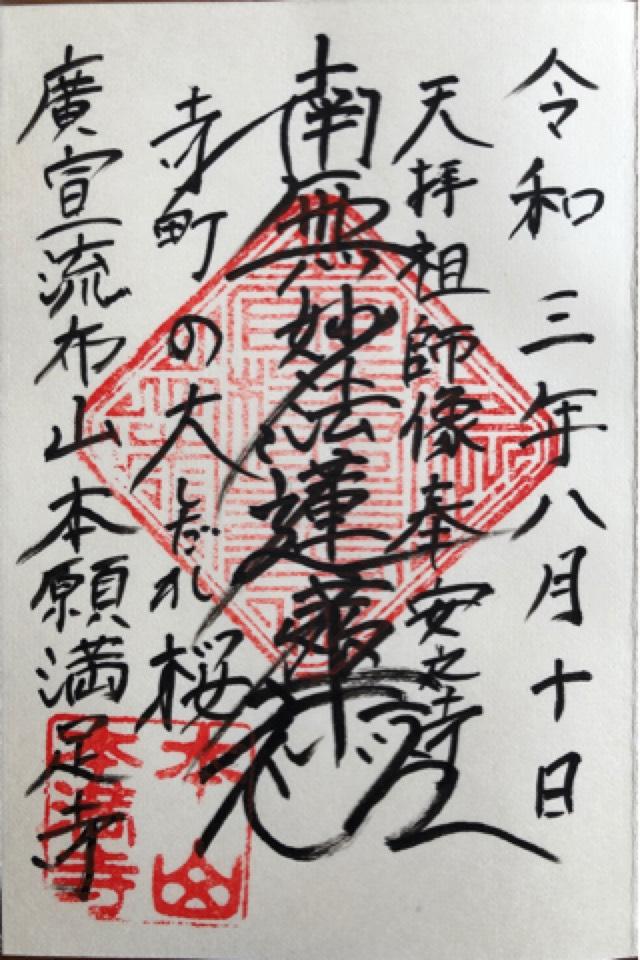 令和三年八月十日
天拝祖師像奉安之寺
南無妙法蓮華経
寺町の大しだれ桜
廣宣流布山本願満足寺
本山
本満寺